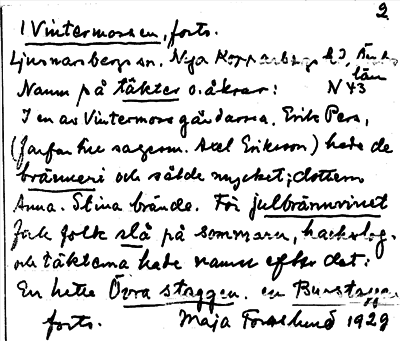 2
1 Vintermossen, forts.
Ljusnarsbergs sn. Nya Kopparbergs hd, Örebro
län
Namn på täkter o. åkrar: N 43
I en av Vintermossgårdarna, Erik Pers,
(farfar till sagesm. Axel Eriksson) hade de
bränneri och sålde mycket; dottern
Anna-Stina brände. För julbrännvinet
fick folk slå på sommaren, hackslog,
och täkterna hade namn efter det:
En hette Övra staggen, en Burstaggen
forts. Maja Forslund 1929